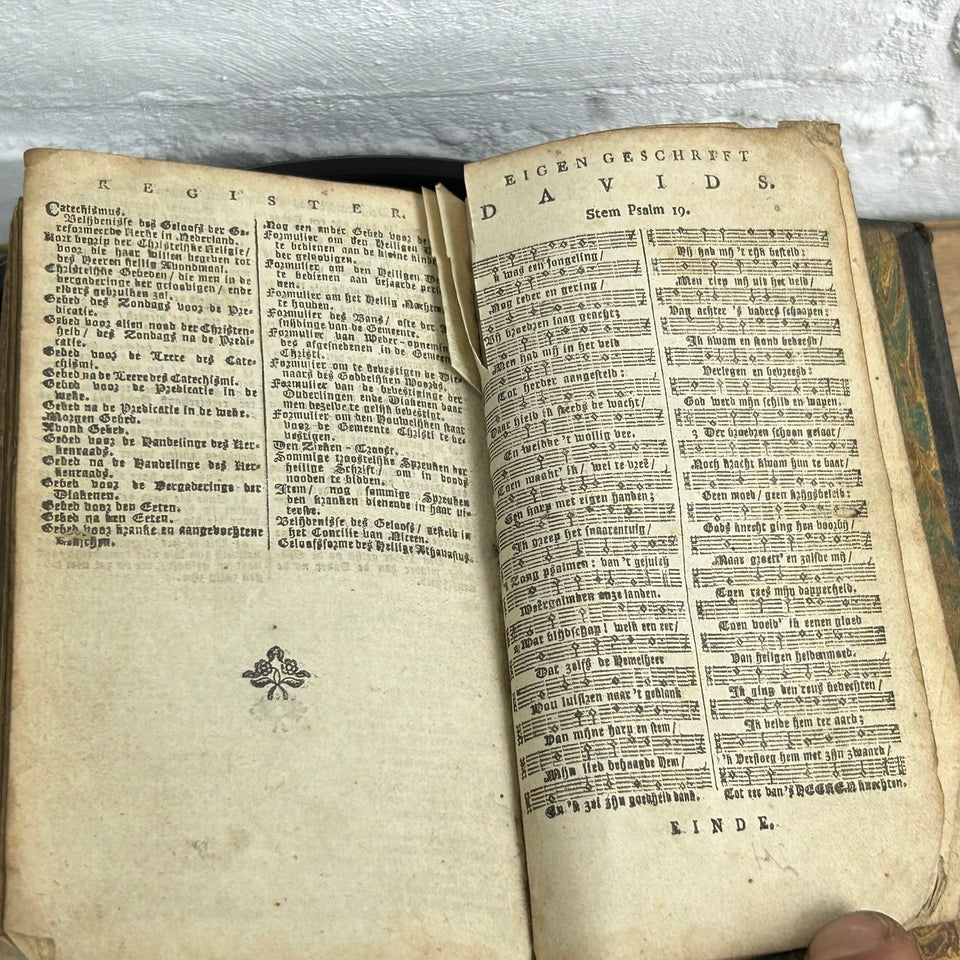 REGISTER.
Catechismus.
Belijdenisse des Geloofs der Ge-
reformeerde Kerke in Nederland.
Kort begrip der Christelijke Religie/
voor die haar willen begeven tot
des Heeren Heilig Avondmaal.
Christelijke Gebeden/ die men in de
vergaderinge der geloovigen/ ende
elders gebruiken zal.
Gebed des Zondags voor de Pre-
dicatie.
Gebed voor allen nood der Christen-
heid/ des Zondags na de Predi-
catie.
Gebed voor de Leere des Cate-
chismi.
Gebed na de Leere des Catechismi.
Gebed voor de Predicatie in de
weke.
Gebed na de Predicatie in de weke.
Morgen Gebed.
Avond Gebed.
Gebed voor de Handelinge des Ker-
kenraads.
Gebed na de Handelinge des Ker-
kenraads.
Gebed voor de Vergaderinge der
Diakenen.
Gebed voor den Eeten.
Gebed na den Eeten.
Gebed voor kranke en aangevochtene
Menschen.
Nog een ander Gebed voor de
Formulier om den Heiligen
te bedienen aan de kleine kinde
der geloovigen.
Formulier om den Heiligen
te bedienen aan bejaarde
nen.
Formulier om het Heilig Nachtm
te houden.
Formulier des Bans/ ofte der
snijdinge van de Gemeente.
Formulier van Weder-opneming
des afgesnedenen in de Gemeen
Christi.
Formulier om te bevestigen de Die-
naars des Goddelijken Woords.
Formulier van de bevestiginge der
Ouderlingen ende Diakenen daar
men dezelve te gelijk bevestigt.
Formulier om den Houwelijken staat
voor de Gemeente Christi te be-
vestigen.
Den Zieken-Troost.
Sommige Troostelijke Spreuken der
heilige Schrift/ om in doods
nooden te bidden.
Item/ nog sommige Spreuken
den kranken dienende in haar uit-
terste.
Belijdenisse des Geloofs/ gesteld in
het Concilie van Niceen.
Geloofsforme des Heilige Athanasius.
EIGEN GESCHRIFT
DAVIDS.
Stem Psalm 19.
k was een jongeling/
Nog teder en gering/
Bij broedren laag geacht;
Men had mij in het veld
Tot herder aangesteld:
Daar hield ik steeds de wacht/
En weidde 't wollig vee.
Toen maakt' ik/ wel te vreê/
Een harp met eigen handen;
Ik greep het snaarentuig/
Zong psalmen: van 't gejuich
Weergalmden onze landen.
Wat blijdschap! welk een eer/
Dat zelfs de Hemelheer
Wou luisren naar 't geklank
Van mijne harp en stem/
Mijn lied behaagde Hem/
En 'k zei zijn goedheid dank.
Hij had mij 't rijk besteld:
Men riep mij uit het veld/
Van achter 's vaders schaapen:
Ik kwam en stond bedeesd/
Verlegen en bevreesd:
God werd mijn schild en wapen.
3 Der broedren schoon gelaat/
Noch kracht kwam hun te baat/
Geen moed/ geen krijgsbeleid:
Gods knecht ging hen voorbij/
Maar groett' en zalfde mij/
Toen rees mijn dapperheid.
Toen voeld' ik eenen gloed
Van heilgen heldenmoed.
Ik ging den reus bevechten/
Ik velde hem ter aard;
'k Versloeg hem met zijn zwaard/
Tot eer van 's HEEREN knechten.
EINDE.